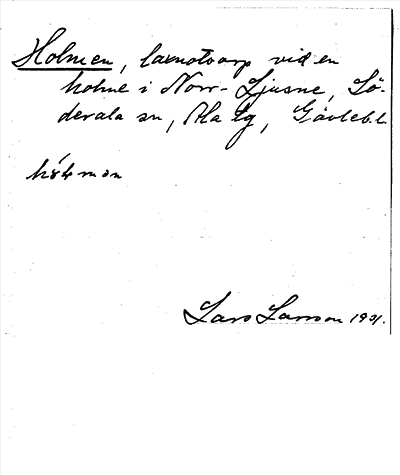 Holmen, lasnotvarp vid en
holme i Norr-Ljusne, Sö-
derala sn, Ala tg, Gävleb. l.
Lars Larsson 1901.